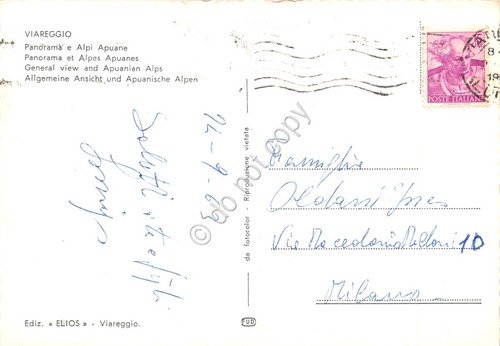 VIAREGGIO
Panorama e Alpi Apuane
Panorama et Alpes Apuanes
General view and Apuanian Alps
Allgemeine Ansicht und Apuanische Alpen
24-9-63
Saluti
Ediz. « ELIOS » - Viareggio.
da Fotocolor - Riproduzione vietata
do not copy
POSTE ITALIANE
Famiglia
Oldani
Via Macedonio Melloni 10
Milano